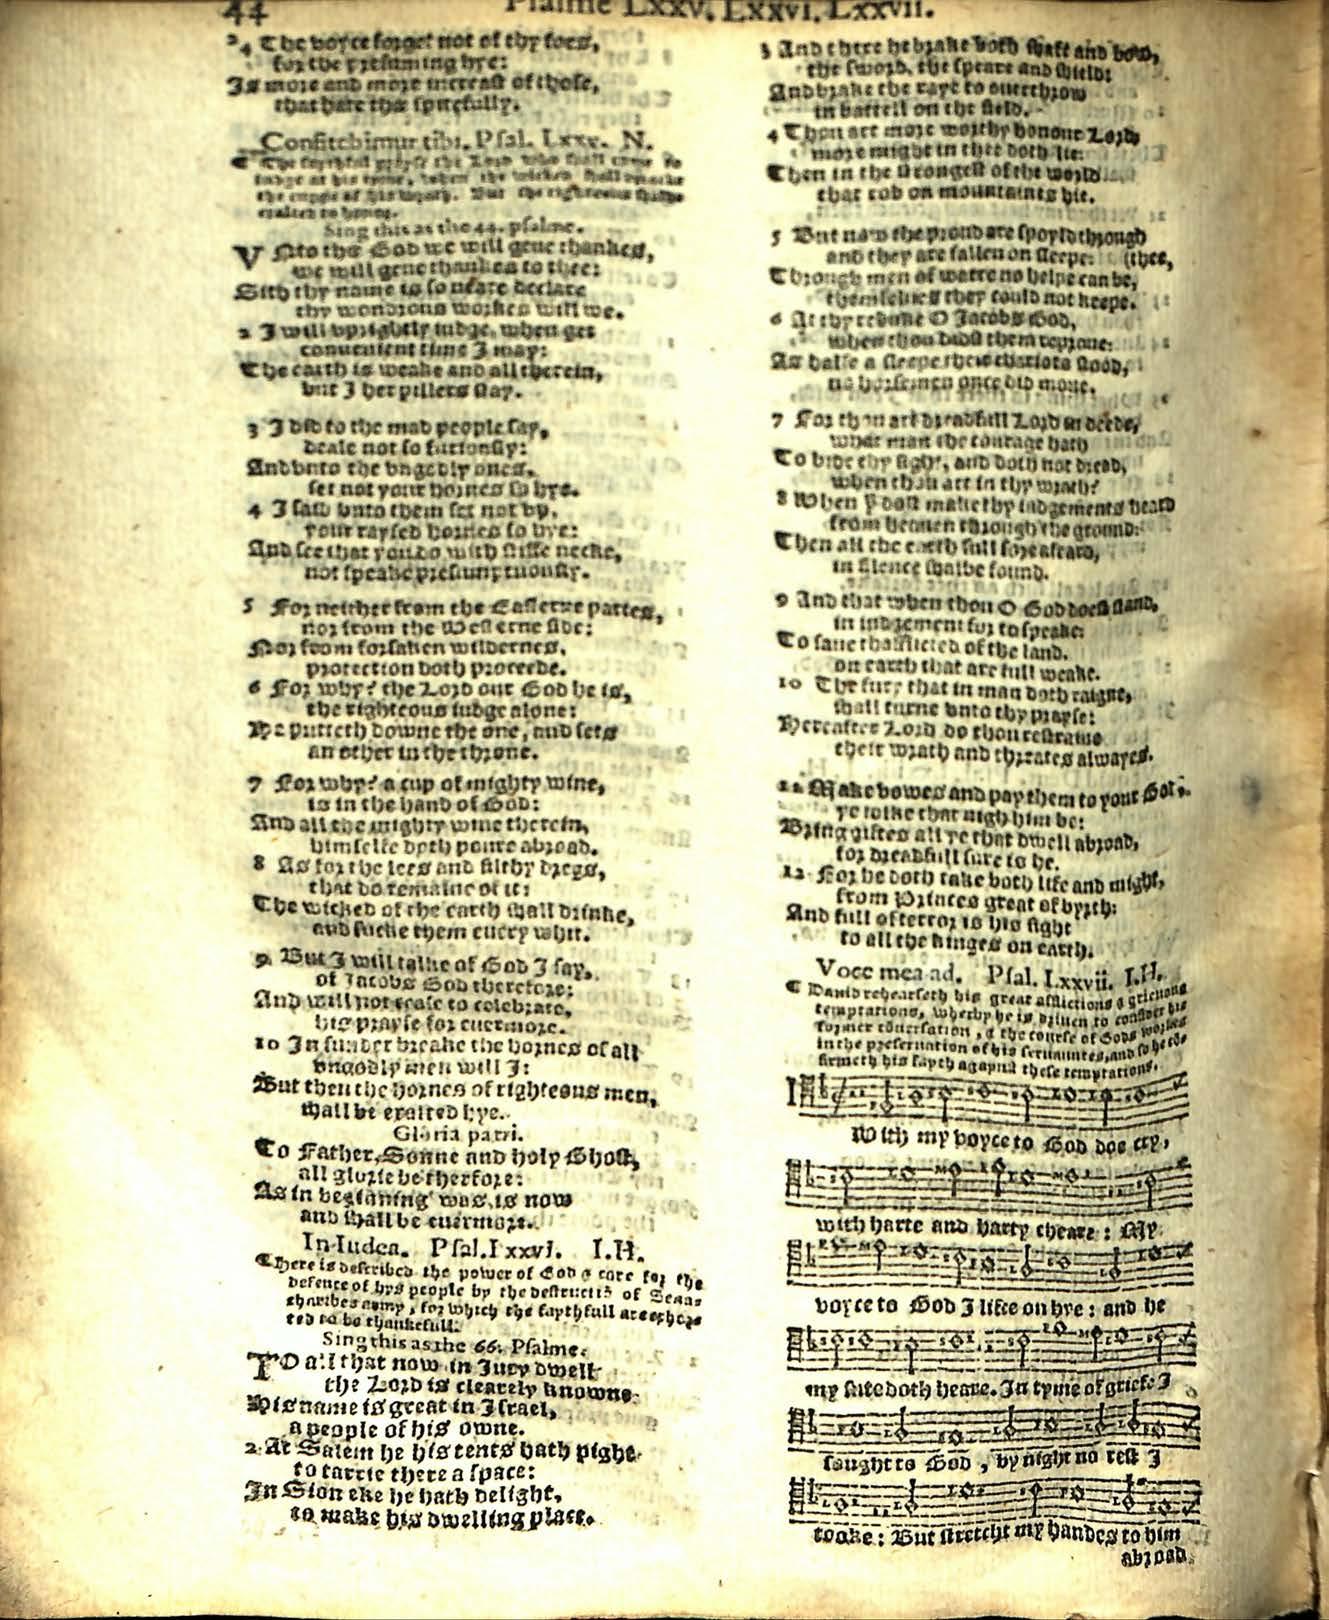 44
Psalme Lxxv. Lxxvi. Lxxvii.
24 The voyce forget not of thy foes,
for the presuming hye:
Is more and more increast of those,
that hate the spitefully.
Confitebimur tibi. Psal. Lxxv. N.
¶ The faythful prayse the Lord who shall come to
iudge at his tyme, when the wicked shall
the cuppe of his wrath. But the righteous shalbe
exalted to honor.
Sing this as the 44. psalme.
VNto the God we will geue thankes,
we will geue thankes to thee:
Sith thy name is so neare declare
thy wondrous workes will we.
2 I will vprightly iudge, when get
conuenient time I may:
The earth is weake and all therein,
but I her pillers stay.
3 I did to the mad people say,
deale not so furiously:
And vnto the vngodly ones,
set not your hornes so hye.
4 I said vnto them set not vp,
your raysed hornes so hye:
And see that you do with stiffe necke,
not speake presumptuously.
5 For neither from the Easterne partes,
nor from the Westerne side:
Nor from forsaken wildernes,
protection doth proceede.
6 For why? the Lord our God he is,
the righteous iudge alone:
He putteth downe the one, and sets
an other in the throne.
7 For why? a cup of mighty wine,
is in the hand of God:
And all the mighty wine therein,
himselfe doth poure abroad.
8 As for the lees and filthy dregs,
that do remaine of it:
The wicked of the earth shall drinke,
and sucke them euery whit.
9 But I will talke of God I say,
of Iacobs God therefore:
And will not cease to celebrate,
his prayse for euermore.
10 In sunder breake the hornes of all
vngodly men will I:
But then the hornes of righteous men,
shall be exalted hye.
Gloria patri.
To Father, Sonne and holy Ghost,
all glorie be therfore:
As in beginning was, is now
and shall be euermore.
In Iudea. Psal. Lxxvi. I.H.
¶ Here is described the power of God & care for the
defence of hys people by the destructiō of Sena-
charibes army, for which the faythfull are exhor-
ted to be thankefull.
Sing this as the 66. Psalme.
TO all that now in Iury dwell
the Lord is clearely knowne
His name is great in Israel,
a people of his owne.
2 At Salem he his tents hath pight
to tarrie there a space:
In Sion eke he hath delight,
to make his dwelling place.
3 And there he brake both shaft and bow,
the sword, the speare and shield:
And brake the raye to ouerthrow
in battell on the field.
4 Thou art more worthy honour Lord,
more might in thee doth lie:
Then in the strongest of the world
that rob on mountaines hie.
5 But now the proud are spoyld through
and they are fallen on sleepe: (thee,
Through men of warre no helpe can be,
themselues they could not keepe.
6 At thy rebuke O Iacobs God,
when thou didst them reproue:
As halfe a sleepe their chariots stood,
no horsemen once did moue.
7 For thou art dreadfull Lord in deede,
what man the courage hath
To bide thy sight, and doth not dread,
when thou art in thy wrath?
8 When ÿ dost make thy iudgements heard
from heauen through the ground:
Then all the earth full sore afeard,
in silence shalbe found.
9 And that when thou O God doest stand,
in iudgement for to speake:
To saue thafflicted of the land,
on earth that are full weake.
10 The fury that in man doth raigne,
shall turne vnto thy prayse:
Hereafter Lord do thou restraine
their wrath and threates alwayes.
11 Make vowes and pay them to your God,
ye folke that nigh him be:
Bring giftes all ye that dwell abroad,
for dreadfull sure is he.
12 For he doth take both life and might,
from Princes great of byrth:
And full of terror is his sight
to all the kinges on earth.
Voce mea ad. Psal. Lxxvii. I.H.
¶ Dauid rehearseth his great afflictions & grieuous
temptations, wherby he is driuen to consider his
former cōuersation, & the course of Gods workes
in the preseruation of his seruauntes, and so he cō-
firmeth his fayth agaynst these temptations.
I
With my voyce to God doe cry,
with harte and harty cheare: My
voyce to God I lifte on hye: and he
my sute doth heare. In tyme of griefe I
sought to God, by night no rest I
tooke: But stretcht my handes to him
abroad